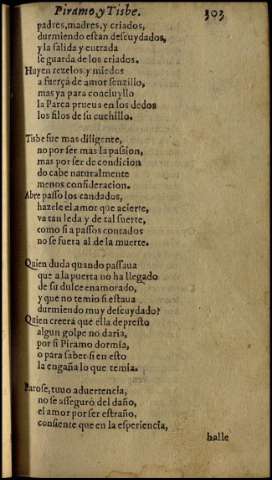 Piramo, y Tisbe. 303
padres, madres, y criados,
durmiendo estan descuydados,
y la salida y entrada
se guarda de los criados.
Huyen rezelos y miedos
a fuerça de amor senzillo,
mas ya para concluyllo
la Parca prueua en los dedos
los filos de su cuchillo.
Tisbe fue mas diligente,
no por ser mas la passion,
mas por ser de condicion
do cabe naturalmente
menos consideracion.
Abre passo los candados,
hazele el amor que acierte,
va tan leda y de tal suerte,
como si a passos contados
no se fuera al de la muerte.
Quien duda quando passaua
que a la puerta no ha llegado
de su dulce enamorado,
y que no temio si estaua
durmiendo muy descuydado?
Quien creerá que ella de presto
algun golpe no daria,
por si Piramo dormia,
o para saber si en esto
la engaña lo que temia.
Parose, tuuo aduertencia,
no se asseguró del daño,
el amor por ser estraño,
consiente que en la esperiencia,
halle